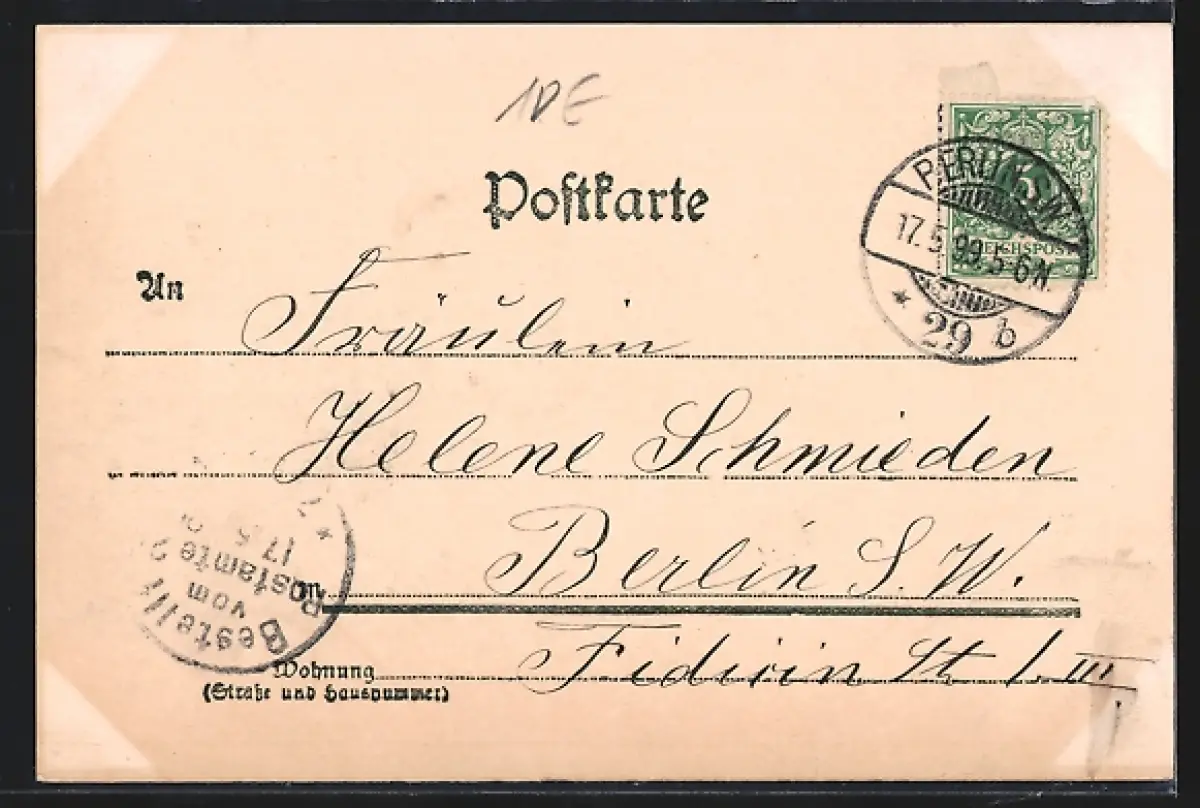 10E
Postkarte
BERLIN S.W.
17.5.99.5-6N.
* 29 b
REICHSPOST
An
Fräulein
Helene Schmieden
Berlin S. W.
Bestellt
vom
Postamte 2
17.5
in
Wohnung
(Straße und Hausnummer)
Fidicin St. 1. III